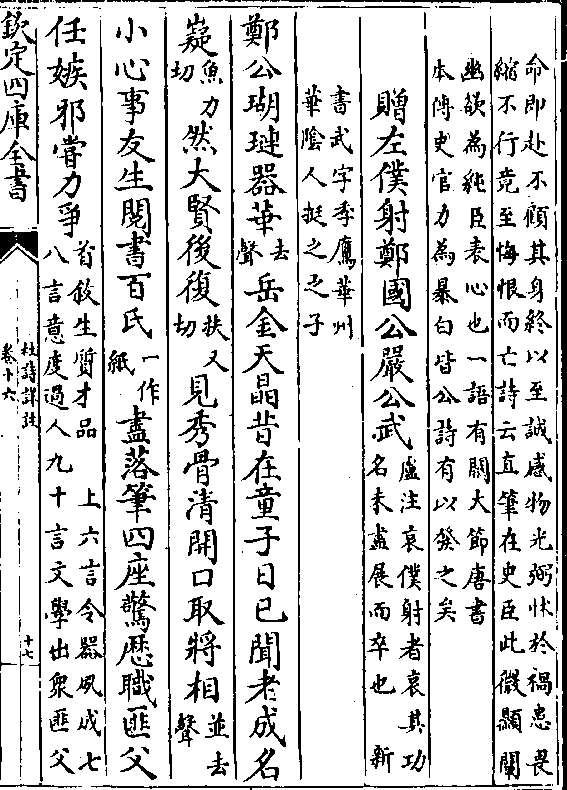 命即赴不顧其身終以至誠感物光弼怵於禍患畏
縮不行竟至悔恨而亡詩云直筆在史臣此微顯闡
幽欲為純臣表心也一語有關大節唐書
本傳史官力為暴白皆公詩有以發之矣
贈左僕射鄭國公嚴公武盧注哀僕射者哀其功
名未盡展而卒也 新
書武字季鷹華州
華陰人挺之之子
鄭公瑚璉器華去
聲岳金天晶昔在童子日已聞老成名
嶷魚力
切然大賢後復扶又
切見秀骨清開口取將相並去
聲
小心事友生閱書百氏一作
紙盡落筆四座驚歷職匪父
任嫉邪嘗力爭首敘生質才品 上六言令器夙成七
八言意度過人九十言文學出衆匪父
欽定四庫全書
杜詩詳註
卷十六
十七